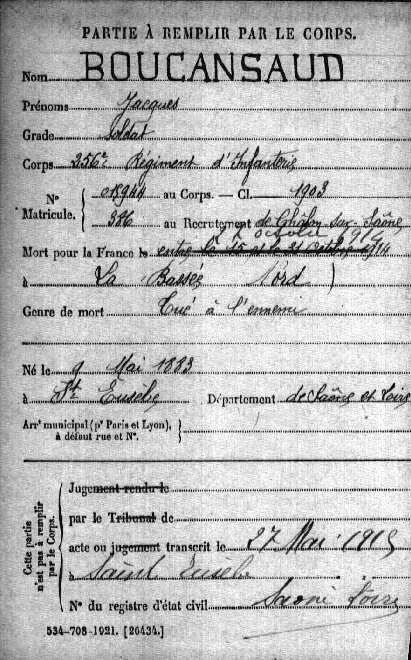 PARTIE À REMPLIR PAR LE CORPS.
Nom BOUCANSAUD
Prénoms Jacques
Grade Soldat
Corps 256e Régiment d'Infanterie
N° Matricule. { 018944 au Corps. — Cl. 1903
386 au Recrutement de Châlon sur Saône
octobre 1914
Mort pour la France le entre le 15 et le 21 octobre 1914
à La Bassée Nord )
Genre de mort Tué à l'ennemi
Né le 9 Mai 1883
à St Eusèbe Département de Saône et Loire
Arrt municipal (pr Paris et Lyon), à défaut rue et N°. }
Cette partie n'est pas à remplir par le Corps.
Jugement rendu le
par le Tribunal de
acte ou jugement transcrit le 27 Mai 1915
à Saint Eusèbe
N° du registre d'état civil Saone Loire
534-708-1921. [26434.]